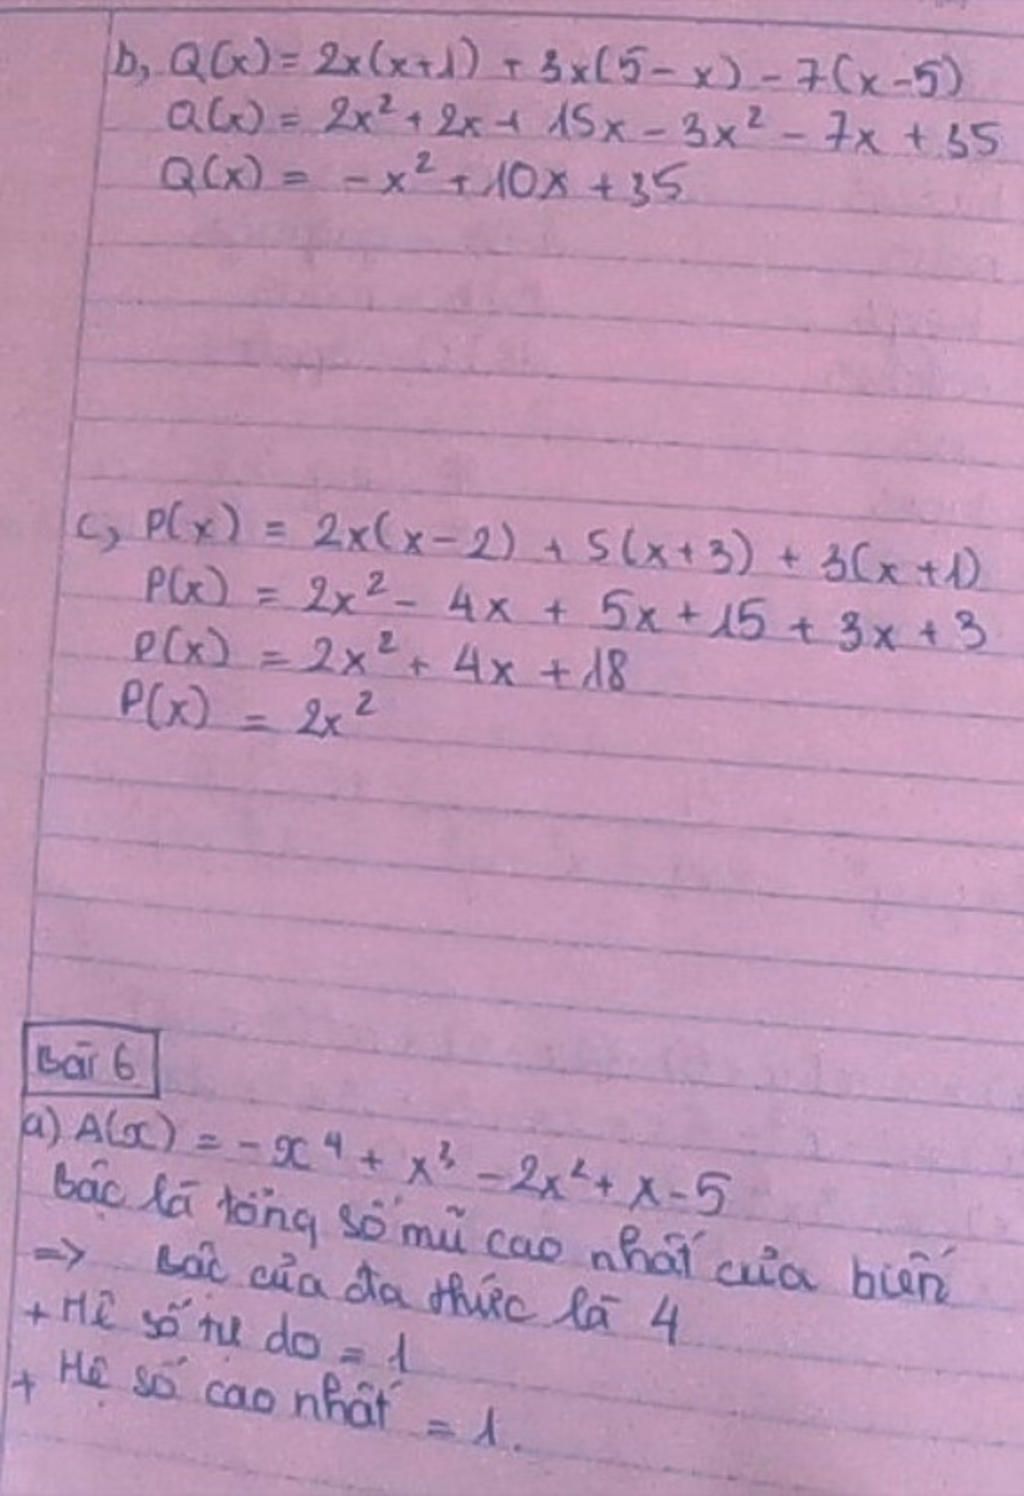 b, Q(x) = 2x(x+1) + 3x(5-x) - 7(x-5)
Q(x) = 2x² + 2x + 15x - 3x² - 7x + 35
Q(x) = -x² + 10x + 35
c, P(x) = 2x(x-2) + 5(x+3) + 3(x+1)
P(x) = 2x² - 4x + 5x + 15 + 3x + 3
P(x) = 2x² + 4x + 18
P(x) = 2x²
Bài 6
a) A(x) = -x⁴ + x³ - 2x² + x - 5
Bậc là tổng số mũ cao nhất của biến
=> Bậc của đa thức là 4
+ Hệ số tự do = 1
+ Hệ số cao nhất = 1.